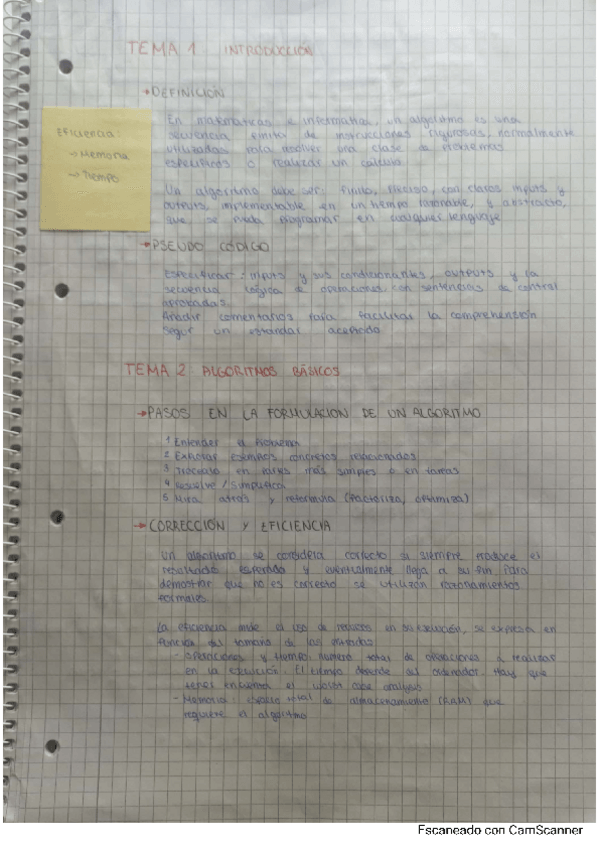 TEMA 1 INTRODUCCIÓN
→DEFINICIÓN
En matemáticas e informática, un algoritmo es una
secuencia finita de instrucciones rigurosas, normalmente
utilizadas para resolver una clase de problemas
específicos o realizar un cálculo
Eficiencia:
→ Memoria
→ Tiempo
Un algoritmo debe ser: finito, preciso, con claros inputs y
outputs, implementable en un tiempo razonable, y abstracto,
que se pueda programar en cualquier lenguaje
→PSEUDO CÓDIGO
Especificar: inputs y sus condicionantes, outputs y la
secuencia lógica de operaciones con sentencias de control
apropiadas.
Añadir comentarios para facilitar la comprehensión
seguir un estándar aceptado
TEMA 2 ALGORITMOS BÁSICOS
→PASOS EN LA FORMULACIÓN DE UN ALGORITMO
1 Entender el problema
2 Explorar ejemplos concretos relacionados
3 Trocharlo en partes más simples o en tareas
4 Resuelve / Simplifica
5 Mira atrás y reformula (factoriza, optimiza)
→ CORRECCIÓN Y EFICIENCIA
Un algoritmo se considera correcto si siempre produce el
resultado esperado y eventualmente llega a su fin. Para
demostrar que no es correcto se utilizan razonamientos
formales
La eficiencia mide el uso de recursos en su ejecución, se expresa en
función del tamaño de las entradas
- Operaciones y tiempo: número total de operaciones a realizar
en la ejecución. El tiempo depende del ordenador. Hay que
tener en cuenta el worst case analysis
- Memoria: espacio total de almacenamiento (RAM) que
requiere el algoritmo
Escaneado con CamScanner